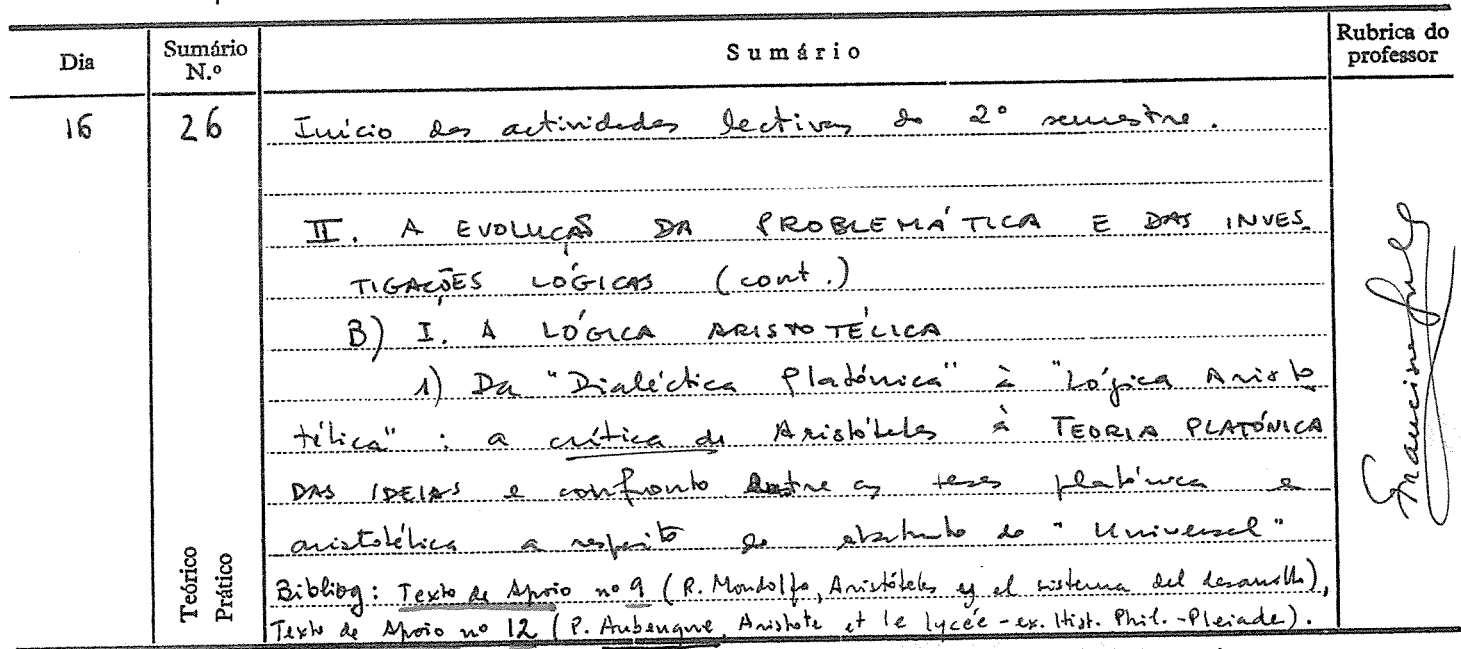 Dia Sumário N.º Sumário Rubrica do professor
16 26 Início das actividades lectivas do 2º semestre.
II. A EVOLUÇÃO DA PROBLEMÁTICA E DAS INVES-
TIGAÇÕES LÓGICAS (cont.)
B) I. A LÓGICA ARISTOTÉLICA
1) Da "Dialéctica Platónica" à "Lógica Aristo
télica" : a crítica de Aristóteles à TEORIA PLATÓNICA
DAS IDEIAS e confronto entre as teses platónica e
aristotélica a respeito do estatuto do "Universal"
Teórico
Prático
Bibliog: Texto de Apoio nº 9 (R. Mondolfo, Aristóteles y el sistema del desarrollo),
Texto de Apoio nº 12 (P. Aubenque, Aristote et le lycée - ex. Hist. Phil. - Pleiade).